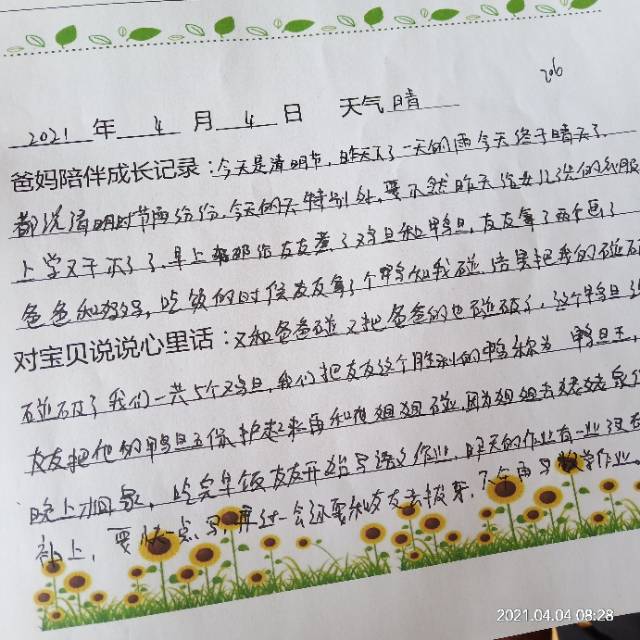 206
2021 年 4 月 4 日 天气 晴
爸妈陪伴成长记录：今天是清明节，昨天下了一天的雨今天终于晴天了，
都说清明时节雨纷纷，今天的天特别好，要不然昨天给女儿洗的衣服
上学又干不了了，早上奶奶给友友煮了鸡蛋和鸭蛋，友友拿了两个
爸爸和妈妈，吃饭的时候友友拿了个鸭蛋和我碰 结果把我的碰碎
对宝贝说说心里话：又和爸爸碰 又把爸爸的也碰破了，这个鸭蛋
碰破了我们一共5个鸡蛋，我们把友友这个胜利的鸭称为 鸭蛋王，
友友把他的鸭蛋王保护起来再和他姐姐碰，因为姐姐去姥姥家
晚上才回来，吃完早饭友友开始写语文作业，昨天的作业有一些没
补上，要快一点写，再过一会还要和友友去拔牙，下午再写数学作业。
2021.04.04 08:28